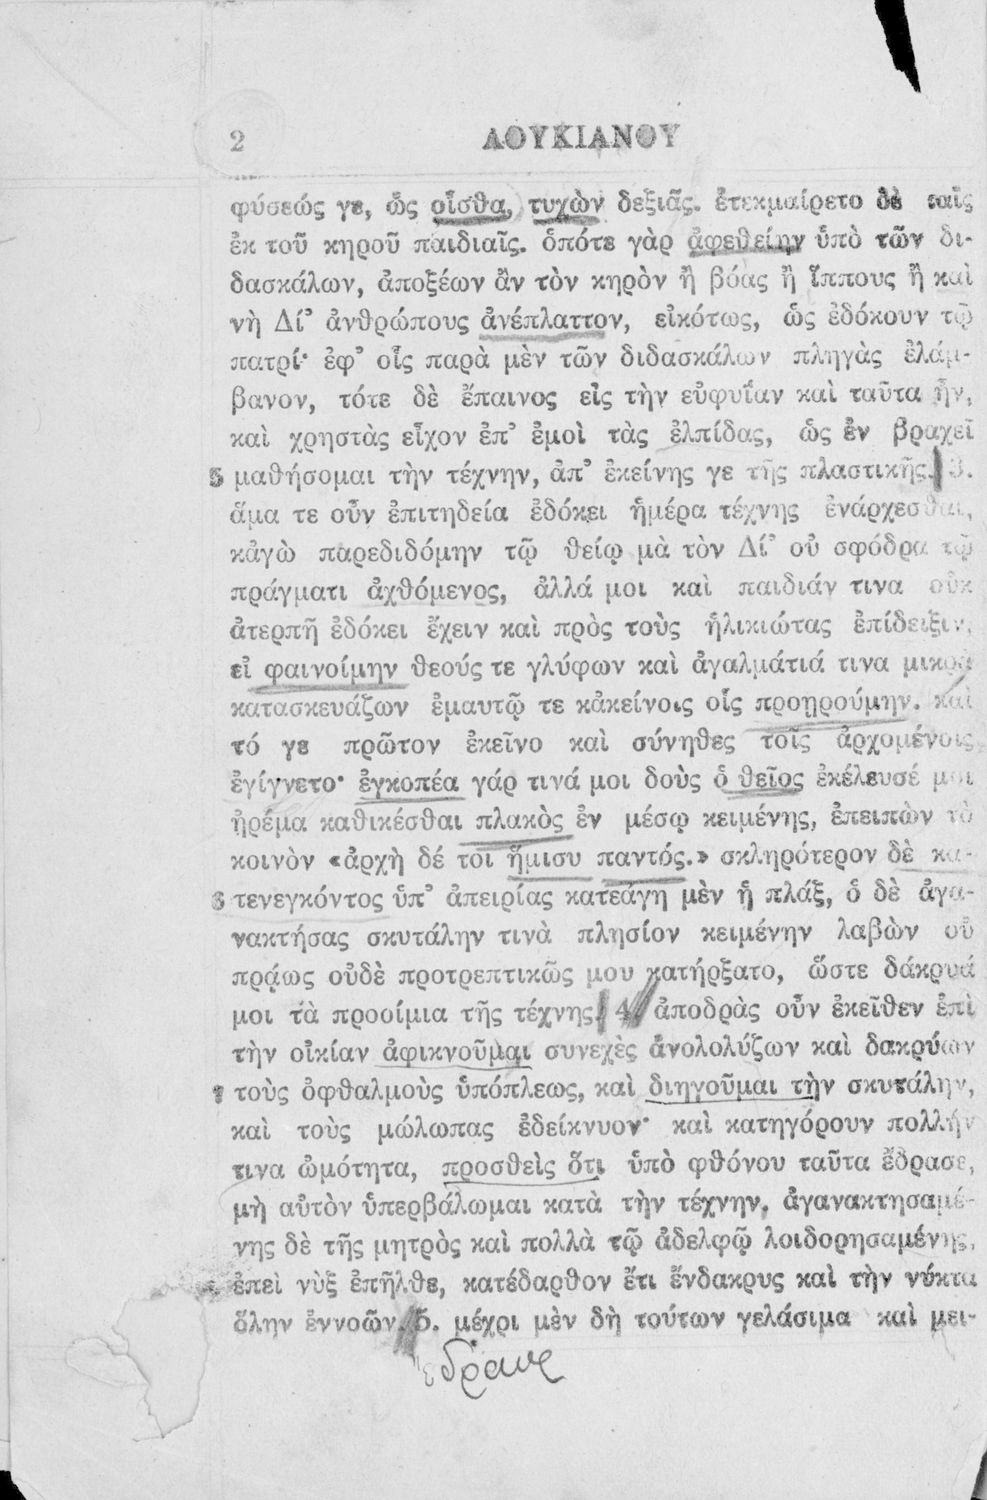 2 ΛΟΥΚΙΑΝΟΥ
φύσεώς γε, ὡς οἶσθα, τυχὼν δεξιᾶς. ἐτεκμαίρετο δὲ ταῖς
ἐκ τοῦ κηροῦ παιδιαῖς. ὁπότε γὰρ ἀφεθείην ὑπὸ τῶν δι-
δασκάλων, ἀποξέων ἂν τὸν κηρὸν ἢ βόας ἢ ἵππους ἢ καὶ
νὴ Δί’ ἀνθρώπους ἀνέπλαττον, εἰκότως, ὡς ἐδόκουν τῷ
πατρί· ἐφ’ οἷς παρὰ μὲν τῶν διδασκάλων πληγὰς ἐλάμ-
βανον, τότε δὲ ἔπαινος εἰς τὴν εὐφυΐαν καὶ ταῦτα ἦν,
καὶ χρηστὰς εἶχον ἐπ’ ἐμοὶ τὰς ἐλπίδας, ὡς ἐν βραχεῖ
5 μαθήσομαι τὴν τέχνην, ἀπ’ ἐκείνης γε τῆς πλαστικῆς. 3.
ἅμα τε οὖν ἐπιτηδεία ἐδόκει ἡμέρα τέχνης ἐνάρχεσθαι,
κἀγὼ παρεδιδόμην τῷ θείῳ μὰ τὸν Δί’ οὐ σφόδρα τῷ
πράγματι ἀχθόμενος, ἀλλά μοι καὶ παιδιάν τινα οὐκ
ἀτερπῆ ἐδόκει ἔχειν καὶ πρὸς τοὺς ἡλικιώτας ἐπίδειξιν,
εἰ φαινοίμην θεούς τε γλύφων καὶ ἀγαλμάτιά τινα μικρὰ
κατασκευάζων ἐμαυτῷ τε κἀκείνοις οἷς προῃρούμην. καὶ
τό γε πρῶτον ἐκεῖνο καὶ σύνηθες τοῖς ἀρχομένοις
ἐγίγνετο· ἐγκοπέα γάρ τινά μοι δοὺς ὁ θεῖος ἐκέλευσέ μοι
ἠρέμα καθικέσθαι πλακὸς ἐν μέσῳ κειμένης, ἐπειπὼν τὸ
κοινὸν «ἀρχὴ δέ τοι ἥμισυ παντός.» σκληρότερον δὲ κα-
6 τενεγκόντος ὑπ’ ἀπειρίας κατεάγη μὲν ἡ πλάξ, ὁ δὲ ἀγα-
νακτήσας σκυτάλην τινὰ πλησίον κειμένην λαβὼν οὐ
πρᾴως οὐδὲ προτρεπτικῶς μου κατήρξατο, ὥστε δάκρυά
μοι τὰ προοίμια τῆς τέχνης. 4. ἀποδρὰς οὖν ἐκεῖθεν ἐπὶ
τὴν οἰκίαν ἀφικνοῦμαι συνεχὲς ἀνολολύζων καὶ δακρύων
7 τοὺς ὀφθαλμοὺς ὑπόπλεως, καὶ διηγοῦμαι τὴν σκυτάλην,
καὶ τοὺς μώλωπας ἐδείκνυον· καὶ κατηγόρουν πολλήν
τινα ὠμότητα, προσθεὶς ὅτι ὑπὸ φθόνου ταῦτα ἔδρασε,
μὴ αὐτὸν ὑπερβάλωμαι κατὰ τὴν τέχνην, ἀγανακτησαμέ-
νης δὲ τῆς μητρὸς καὶ πολλὰ τῷ ἀδελφῷ λοιδορησαμένης,
ἐπεὶ νὺξ ἐπῆλθε, κατέδαρθον ἔτι ἔνδακρυς καὶ τὴν νύκτα
ὅλην ἐννοῶν. 5. μέχρι μὲν δὴ τούτων γελάσιμα καὶ μει-